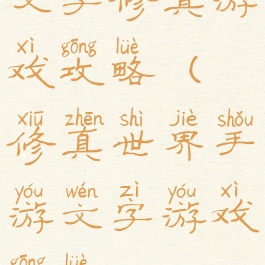 文字修真游
xì gōng lüè
戏攻略（
xiū zhēn shì jiè shǒu
修真世界手
yóu wén zì yóu xì
游文字游戏
gōng lüè